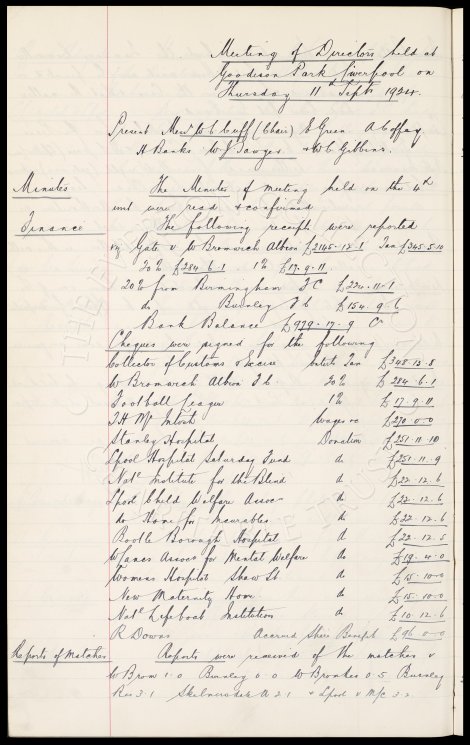 Meeting of Directors held at
Goodison Park Liverpool on
Thursday 11th Sept 1924.
Present Messrs W C Cuff (Chair) E Green A Coffey
H Banks W J Sawyer & W C Gibbins.
Minutes
The Minutes of meeting held on the 4th
inst were read & confirmed
Finance
The following receipts were reported
viz Gate v W Bromwich Albion £2145-12-1 Tax £345-5-10
20% £284-6-1 1% £17-9-11
20% from Birmingham F C £224-11-1
do Burnley F C £154-9-6
Bank Balance £979-17-9 Cr
Cheques were signed for the following
Collector of Customs & Excise Entert Tax £348-13-8
W Bromwich Albion F C. 20% £284-6-1
Football League 1% £17-9-11
T H McIntosh Wages &c £270-0-0
Stanley Hospital Donation £251-11-10
Lpool Hospital Saturday Fund do £251-11-9
Natl Institute for the Blind do £22-12-6
Lpool Child Welfare Assoc do £22-12-6
do Home for Incurables do £22-12-6
Bootle Borough Hospital do £22-12-5
W Lancs Assoc for Mental Welfare do £19-4-0
Womens Hospital Shaw St do £15-10-0
New Maternity Home do £15-10-0
Natl Lifeboat Institution do £10-12-6
R Downs Accrued Share Benefit £96-0-0
Reports of Matches
Reports were received of the matches v
W Brom 1.0 Burnley 0.0 W Bromwich 0.5 Burnley
Res 3.1 Skelmersdale A 2.1 & Lpool v M/C 3.2.